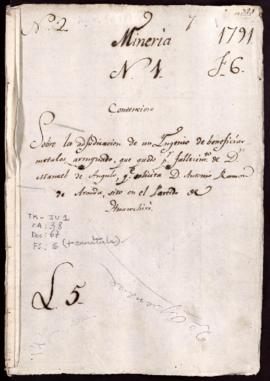 N.º 2 7 1791
Mineria
N. 4. F. 6.
Contencioso
Sobre la adjudicacion de un Ingenio de beneficiar
metales arruynado, que quedo pr fallecim.to de Dn
Manuel de Angulo, q.e solicita D. Antonio Ramon
de Aranda, sito en el Partido de
Huarochirí
TM-JU 1
CA: 38
Doc: 67
FS: 6 (+ caratula)
L. 5.